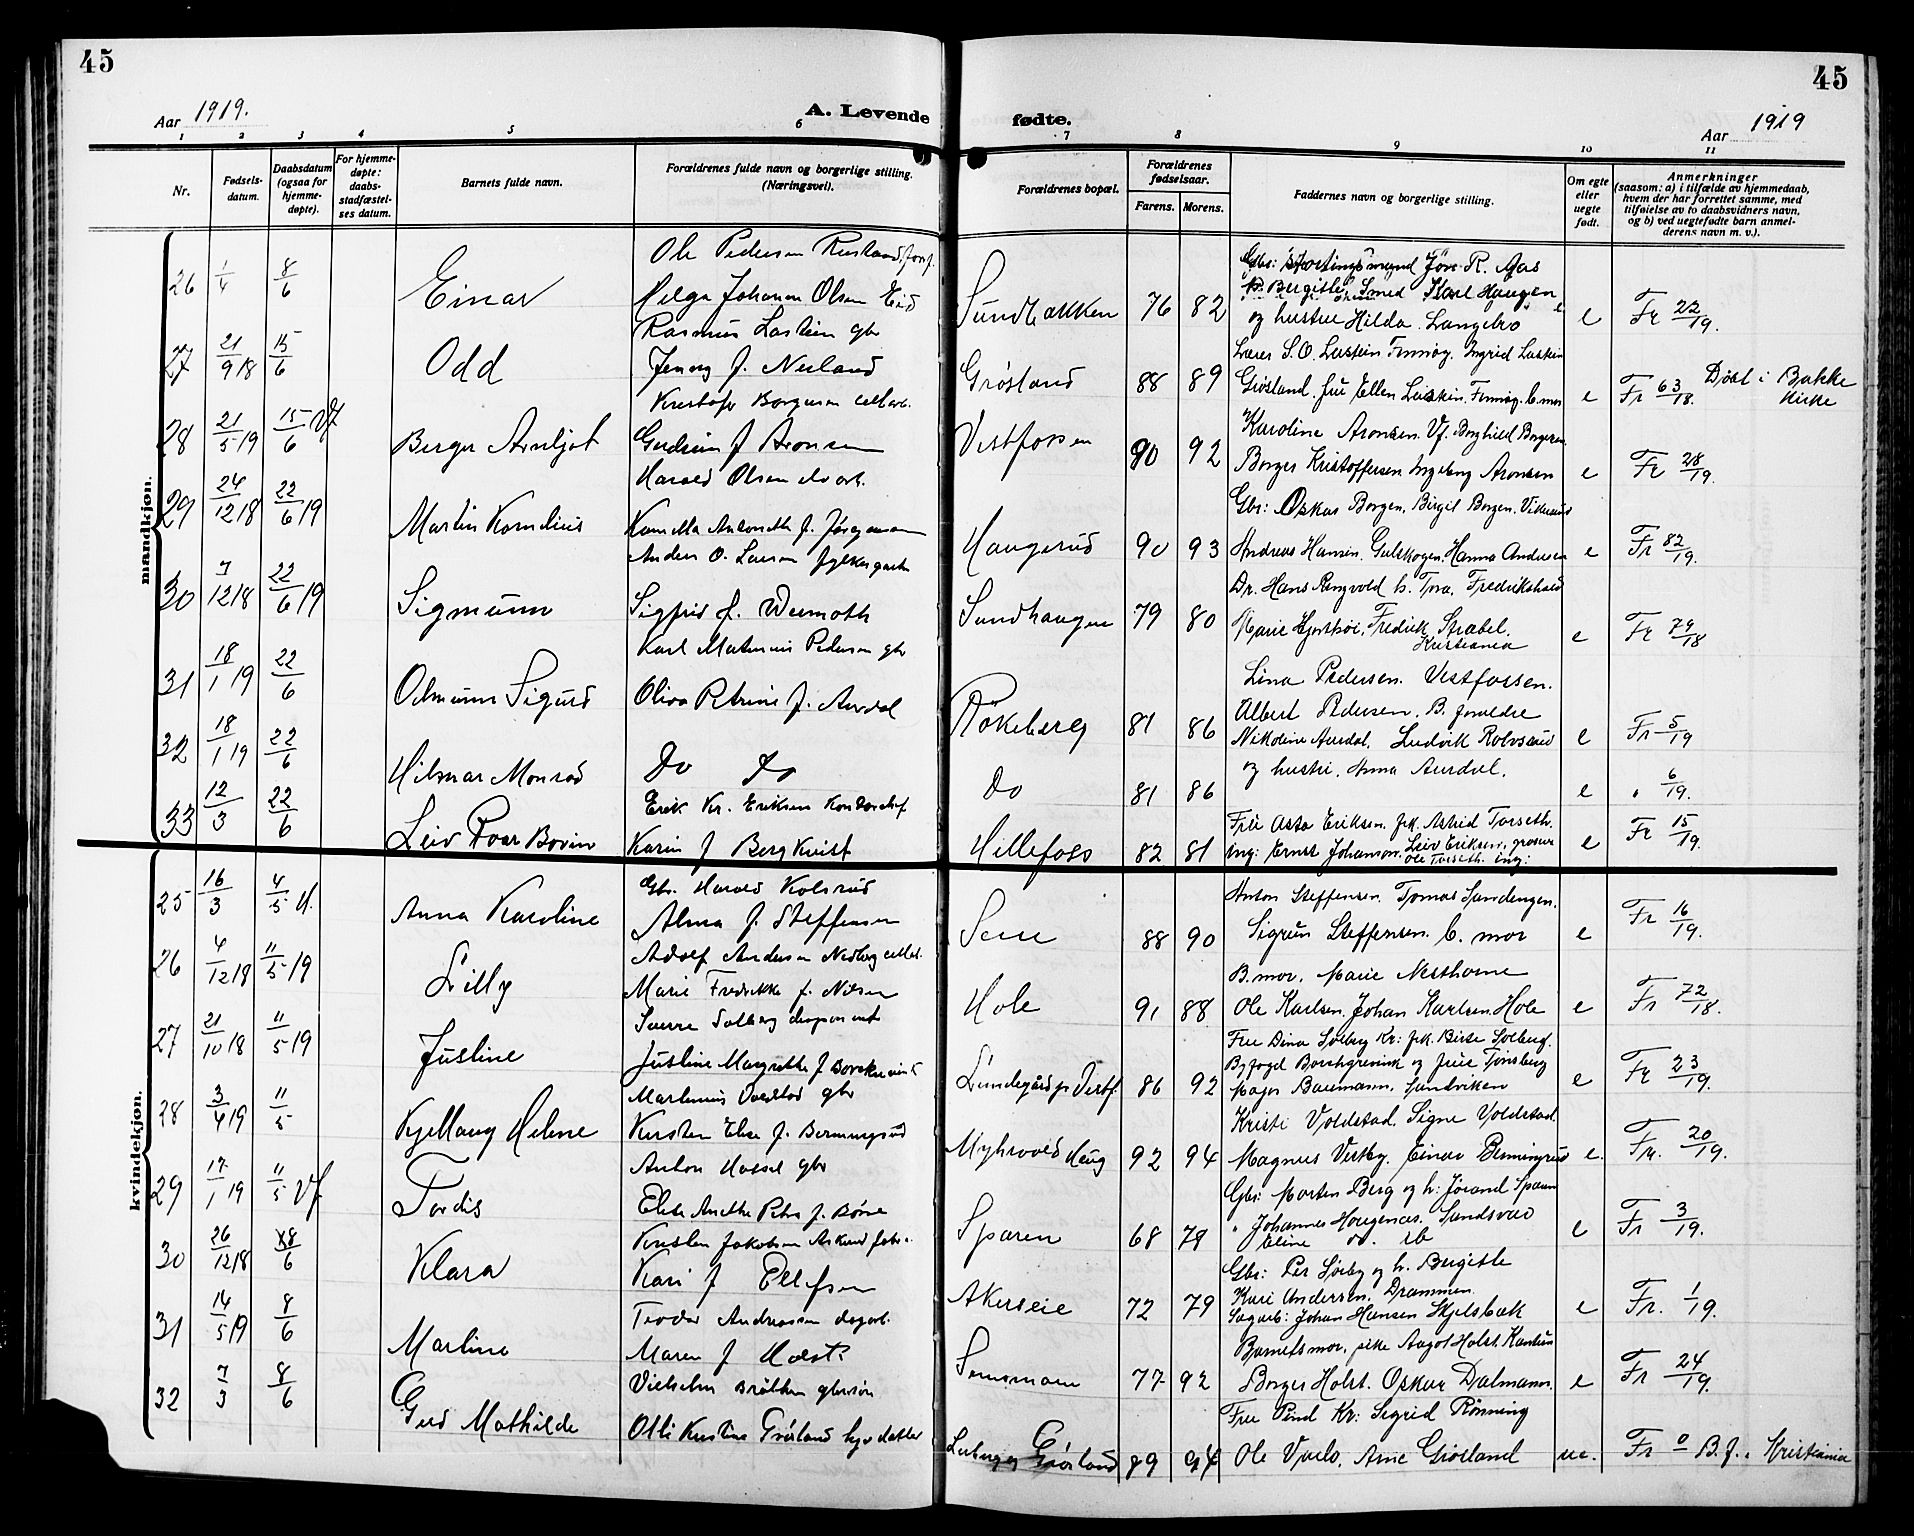 45
45
Aar 1919.
A. Levende fødte.
Aar 1919
1 2 3 4 5 6 7 8 9 10 11
Nr.
Fødsels-
datum.
Daabsdatum
(ogsaa for
hjemme-
døpte).
For hjemme-
døpte:
daabs-
stadfæstel-
ses datum.
Barnets fulde navn.
Forældrenes fulde navn og borgerlige stilling.
(Næringsvei).
Forældrenes bopæl.
Forældrenes
fødselsaar.
Farens. Morens.
Faddernes navn og borgerlige stilling.
Om egte
eller
uegte
født.
Anmerkninger
(saasom: a) i tilfælde av hjemmedaab,
hvem der har forrettet samme, med
tilføielse av to daabsvidners navn,
og b) ved uegtefødte barn anmel-
derens navn m. v.).
mandkjøn.
26 1/4 8/6 Einar
Ole Pedersen
Helga Johanna Olsen Eid
Sundbakken 76 82
R. Aas
Bergitte, Smed Karl Haugen
og hustru Hilda. Langebro
e Fr 22/19.
27 21/9 18 15/6 Odd
Rasmus Lastein gbr
Jenny f. Neuland
Grøsland 88 89
Lærer S. O. Lastein Finnøy. Ingrid Lastein
Grøsland. fru Ellen Lastein, Finnøy. B. mor
e Fr 63/18. Døbt i Bakke
kirke
28 21/5 19 15/6 Vf Berger Arnljot
Kristofer Borgersen
Gudrun f Aronsen
Vestfossen 90 92
Karoline Aronsen. Vf. Borghild Borgersen
Borger Kristoffersen Ingeborg Aronsen
e Fr 28/19.
29 24/12 18 22/6 19 Martin Kornelius
Harald Olsen
Kamilla Antonette f. Jørgensen
Haugerud 90 93
Gbr: Oskar Borgen, Birgit Borgen. Vikersund
Andreas Hansen. Gulskogen. Hanna Andersen
e Fr 82/19.
30 7/12 18 22/6 19 Sigmunn
Anders O. Larsen
Sigfrid f. Wermoth
Sundhaugen 79 80
Dr. Hans Ringvold h. Tora, Fredrikshald
Marie Hjorthøi, Fredrik Strøbel.
Kristiania
e Fr 79/18
31 18/1 19 22/6 Odmunn Sigurd
Karl Mathinius Pedersen gbr
Oliva Petrine f. Aurdal
Røkeberg 81 86
Lina Pedersen. Vestfossen.
Albert Pedersen. B. foreldre
Nikoline Aurdal, Ludvik Rolvsrud
e Fr 5/19
32 18/1 19 22/6 Hilmar Monrad
Do Do
Do 81 86
og hustru. Anna Aurdal.
e " 6/19.
33 12/3 22/6 Leiv Roar Bovin
Erik Kr. Eriksen Kontorchef
Karin f Bergkvist
Hillefoss 82 81
Fru Asta Eriksen. frk. Astrid Torseth.
ing: Ernst Johanson. Leiv Eriksen, grosser
Ole Torseth. ing:
e Fr 15/19.
kvindekjøn.
25 16/3 4/5 H. Anna Karoline
Gbr. Harald Kolsrud
Alma f. Steffensen
Sem 88 90
Anton Steffensen. Tomas Sandengen.
Sigrun Steffensen. B. mor
e Fr 16/19.
26 4/12 18 11/5 19 Lilly
Adolf Andersen Nedberg
Marie Fredrikke f. Nilsen
Hole 91 88
B. mor, Marie Nesthorne
Ole Karlsen, Johan Karlsen Hole
e Fr 72/18.
27 21/10 18 11/5 19 Justine
Sverre Solberg disponent
Justine Margrethe f Borchgrevink
Lundegård pr Vestf. 86 92
Fru Dina Solberg Kr: frk. Birte Solberg.
Byfoged Borchgrevink og frue Tønsberg
Major Baumann. Sandviken
e Fr 23/19.
28 3/4 19 11/5 Kjellaug Helene
Martinius Voldstad gbr
Kirsten Elise f. Berningrud
Myhrvold Haug 92 94
Kristi Voldstad. Signe Voldstad
Magnus Vestby. Einar Benningrud
e. Fr. 20/19.
29 17/1 19 11/5 Vf Tordis
Anton Hassel gbr
Elise Anethe Petra f. Børse
Sparen 68 79
Gbr: Morten Berg og h: Jørand Sparen
" Johannes Haugenes. Sandsvær
Eline do.
e Fr 3/19.
30 26/12 18 8/6 Klara
Kristen Jakobsen
Kari f Ellefsen
Akerseie 72 79
Gbr: Per Sørby og h. Bergitte
Kari Andersen. Drammen
Sagarb: Johan Hansen Skjelsbæk
e Fr. 1/19.
31 14/5 19 8/6 Martine
Teodor Andreassen dagarb.
Maren f Holst
Semsmoen 77 92
Barnets mor, pike Aagot Holst
Borger Holst. Oskar Dalmann.
e Fr 24/19.
32 7/3 8/6 Gud Mathilde
Vilhelm Bråthen gbrsøn
Olli Kirstine Grøsland
Grøsland 89 94
Fru Pind Kr: Sigrid Rønning
Ole Arne Grøsland
ue. Fr 0 B. f. Kristiania